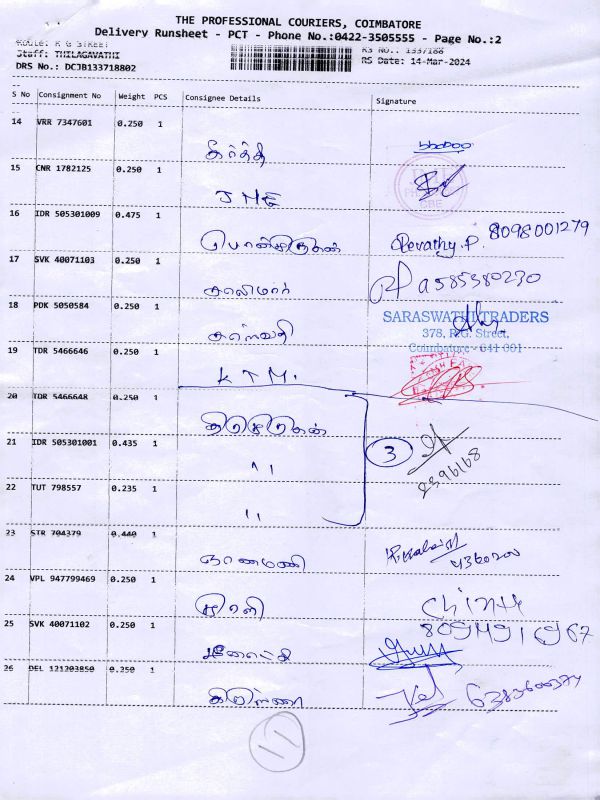 THE PROFESSIONAL COURIERS, COIMBATORE
Delivery Runsheet - PCT - Phone No.:0422-3505555 - Page No.:2
Route: R G STREET
Staff: THILAGAVATHI RS No.: 133/188
DRS No.: DCJB133718802 RS Date: 14-Mar-2024
S No Consignment No Weight PCS Consignee Details Signature
14 VRR 7347601 0.250 1
கீர்த்தி
15 CNR 1782125 0.250 1
JNE
16 IDR 505301009 0.475 1
பொன்முருகன் Revathy.P. 8098001279
17 SVK 40071103 0.250 1
சாலிமார் 9585380230
18 PDK 5050584 0.250 1
சரஸ்வதி
SARASWATHI TRADERS
378, R.G. Street,
Coimbatore - 641 001
19 TDR 5466646 0.250 1
KTM.
20 TDR 5466648 0.250 1
திருமுருகன்
21 IDR 505301001 0.435 1
" 3
22 TUT 798557 0.235 1
"
23 STR 704379 0.440 1
ஞானமணி
24 VPL 947799469 0.250 1
ஜாலி
25 SVK 40071102 0.250 1
26 DEL 121203850 0.250 1
கிருஷ்ணா
11